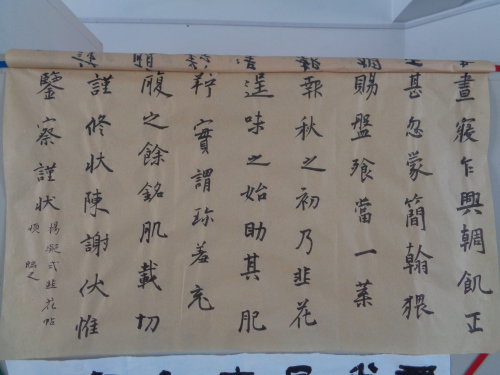 晝寢乍興輖飢正
甚忽蒙簡翰猥
賜盤飧當一葉
報秋之初乃韭花
逞味之始助其肥
羜實謂珍羞充
腹之餘銘肌載切
謹修狀陳謝伏惟
鑒察謹狀
楊凝式韭花帖
臨之